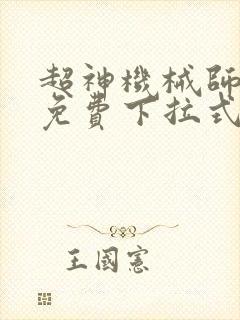 超神機械師
免費下拉式
王國憲